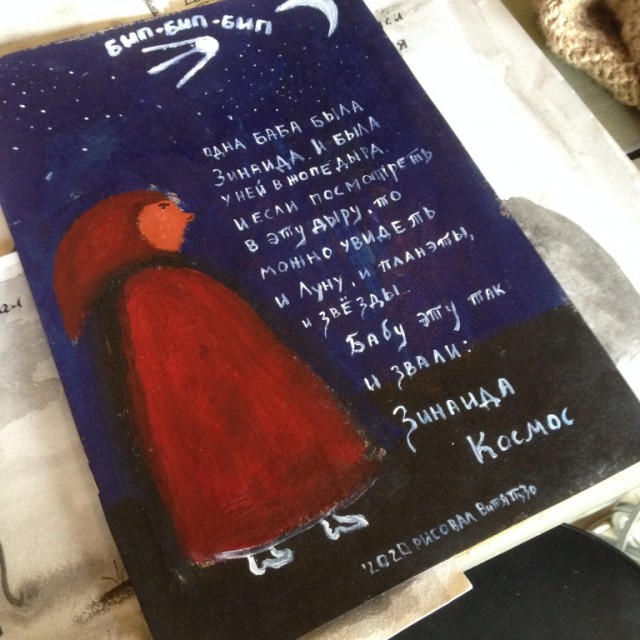 БИП-БИП-БИП
ОДНА БАБА БЫЛА
ЗИНАИДА. И БЫЛА
У НЕЙ В ЖОПЕ ДЫРА.
И ЕСЛИ ПОСМОТРЕТЬ
В ЭТУ ДЫРУ, ТО
МОЖНО УВИДЕТЬ
И ЛУНУ, И ПЛАНЭТЫ,
И ЗВЁЗДЫ.
БАБУ ЭТУ ТАК
И ЗВАЛИ:
ЗИНАИДА
КОСМОС
'2020 РИСОВАЛ